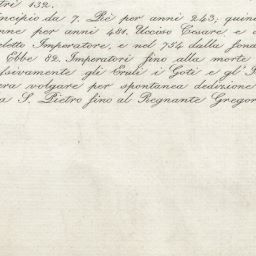 tri 132.
ncipio da 7. Rè per anni 243; quin
nne per anni 481. Ucciso Cesare, e
detto Imperatore, e nel 754 dalla fona
Ebbe 82. Imperatori fino alla morte
sivamente gli Eruli i Goti e gl'
era volgare per spontanea dedizione
a S. Pietro fino al Regnante Gregor